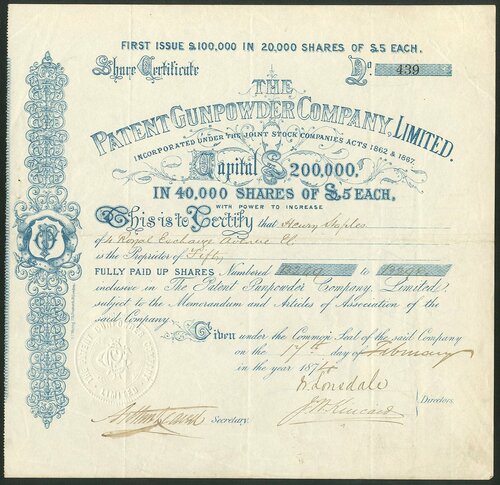 FIRST ISSUE £100,000 IN 20,000 SHARES OF £5 EACH.
Share Certificate No. 439
THE
PATENT GUNPOWDER COMPANY, LIMITED.
INCORPORATED UNDER THE JOINT STOCK COMPANIES ACTS 1862 & 1867.
Capital £200,000,
IN 40,000 SHARES OF £5 EACH.
WITH POWER TO INCREASE
This is to Certify that Henry Staples
of 4 Royal Exchange Avenue EC
is the Proprietor of Fifty
FULLY PAID UP SHARES Numbered to
inclusive in The Patent Gunpowder Company, Limited,
subject to the Memorandum and Articles of Association of the
said Company.
Given under the Common Seal of the said Company
on the 17th day of February
in the year 187
Lonsdale
J. W. Kincaid
Directors.
Secretary.
LIMITED